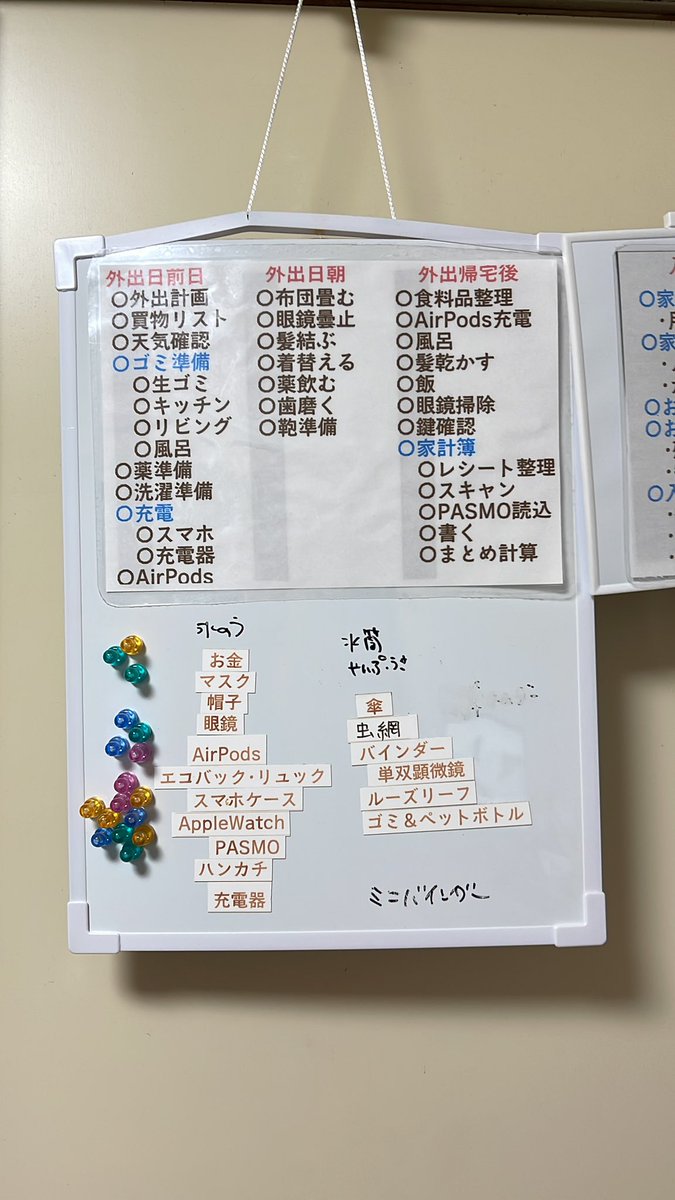 外出日前日
〇外出計画
〇買物リスト
〇天気確認
〇ゴミ準備
〇生ゴミ
〇キッチン
〇リビング
〇風呂
〇薬準備
〇洗濯準備
〇充電
〇スマホ
〇充電器
〇AirPods
外出日朝
〇布団畳む
〇眼鏡曇止
〇髪結ぶ
〇着替える
〇薬飲む
〇歯磨く
〇鞄準備
外出帰宅後
〇食料品整理
〇AirPods充電
〇風呂
〇髪乾かす
〇飯
〇眼鏡掃除
〇鍵確認
〇家計簿
〇レシート整理
〇スキャン
〇PASMO読込
〇書く
〇まとめ計算
氷のう
お金
マスク
帽子
眼鏡
AirPods
エコバック・リュック
スマホケース
AppleWatch
PASMO
ハンカチ
充電器
水筒
傘
虫網
バインダー
単双顕微鏡
ルーズリーフ
ゴミ＆ペットボトル
ミニバインダー
〇家
〇家
〇お
〇お